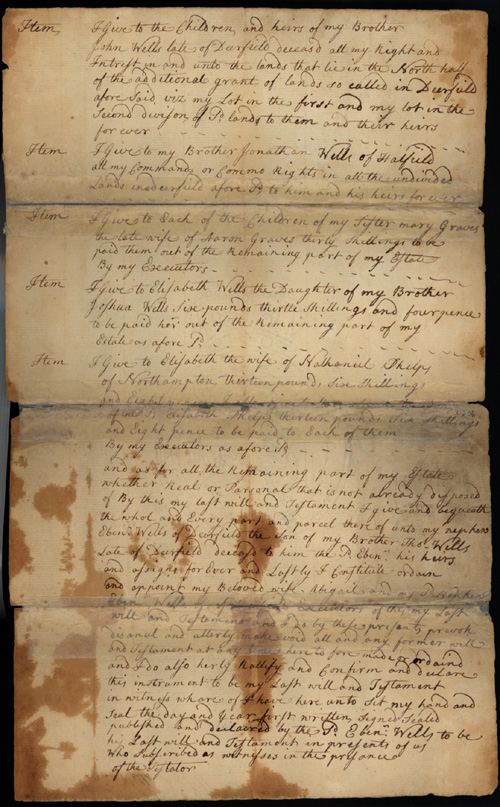 Item I Give to the Children and heirs of my Brother
John Wells late of Deerfield deceasd all my Right and
Intrest in and unto the lands that lie in the North half
of the additional grant of lands so called in Deerfield
afore Said viz my Lot in the first and my lot in the
Second divison of sd lands to them and their heirs
for ever
Item I Give to my Brother Jonathan Wells of Hatfield
all my Commands or Commo Rights in all the undivided
Lands in deerfield afore sd to him and his heirs for ever
Item I Give to Each of the Children of my Sister mary Graves
the late wife of Aaron Graves thirty Shillings to be
paid them out of the Remaining part of my Estate
By my Executors
Item I Give to Elisabeth Wells the Daughter of my Brother
Joshua Wells Six pounds thirtte Shillings and four pence
to be paid her out of the Remaining part of my
Estate as afore sd
Item I Give to Elisabeth the wife of Nathaniel Phelps
of Northampton thirteen pounds Six Shillings
and
of the sd Elisabeth Phelps thirteen pounds Six Shillings
and Eight pence to be paid to Each of them
By my Executors as afore sd
and as for all the Remaining part of my Estate
whether Real or Parsonal that is not already disposed
of By this my last will and Testament I give and bequeath
the whol and Every part and parcel there of unto my nephew
Ebenr Wells of Deerfield the Son of my Brother Thos Wells
Late of Deerfield deceasd to him the sd Ebenr his heirs
and assigns for Ever and Lastly I Constitute ordain
and appoint my Beloved wife Abigail and sd Nephew
Ebenr Wells executors of this my Last
will and Testament and I do by these presents revok
disanul and utterly make void all and any former will
and Testament at any time here to fore made or ordaind
and I do also herby Rattify and Confirm and declare
this instrument to be my Last will and Testament
in witness whare of I have here unto Set my hand and
Seal the day and year first written Signed Sealed
published and declared by the sd Ebenr Wells to be
his Last will and Testament in presents of us
who Subscribed as witnesses in the presance
of the Testator